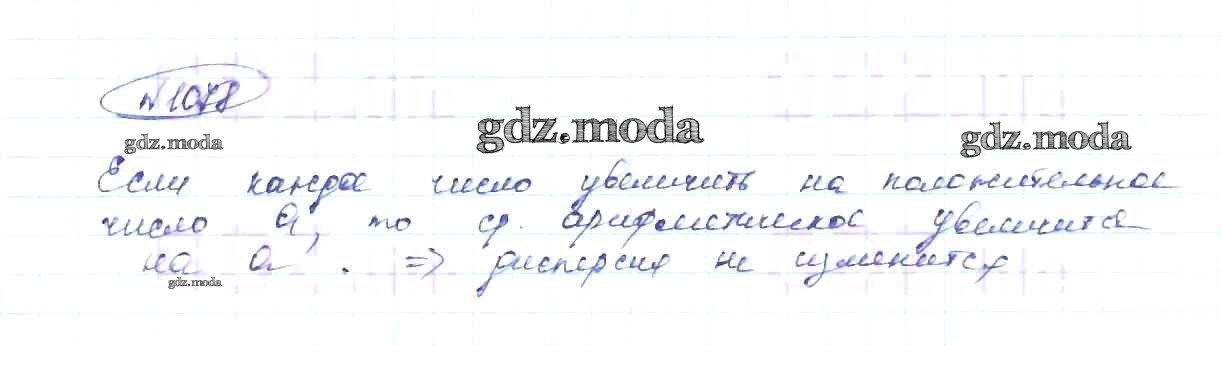 №1078
gdz.moda gdz.moda gdz.moda
Если каждое число увеличить на положительное
число a, то ср. арифметическое увеличится
на a. => дисперсия не изменится
gdz.moda